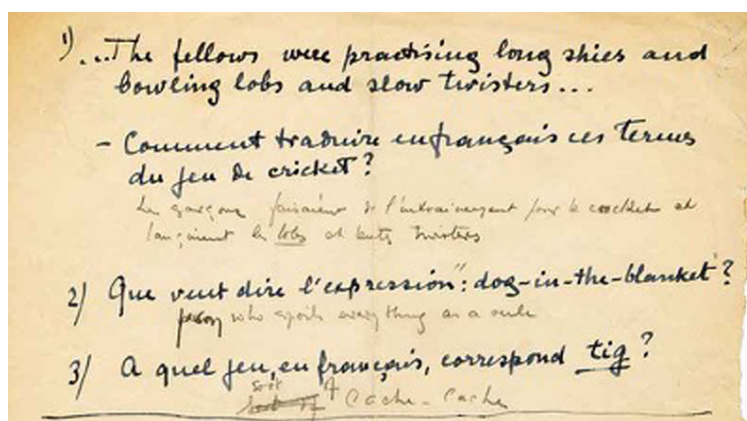 1)...The fellows were practising long skies and
bowling lobs and slow twisters...
- Comment traduire en français ces termes
du jeu de cricket?
Les garçons faisaient de l'entrainement pour le cricket et
lançaient les lobs et twisters
2) Que veut dire l'expression": dog-in-the-blanket?
person who spoils everything as a rule
3) A quel jeu, en français, correspond tig?
sort of Cache-Cache